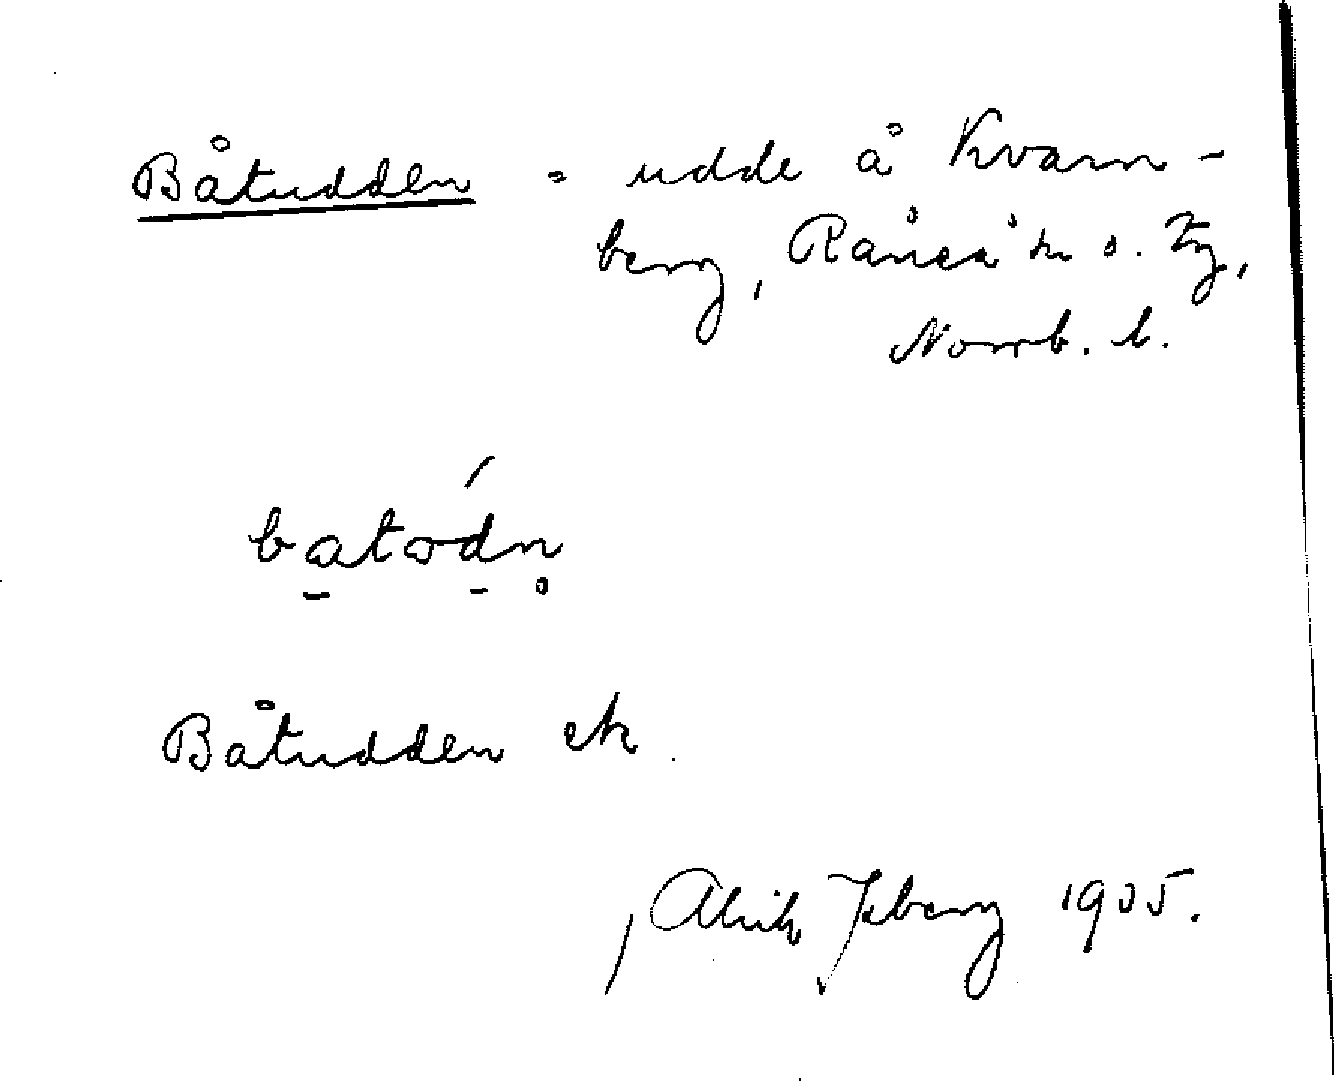 Båtudden = udde å Kvarn-
berg, Råneå sn o. tg,
Norrb. l.
batodn
Båtudden ek
Alrik Isberg 1905.